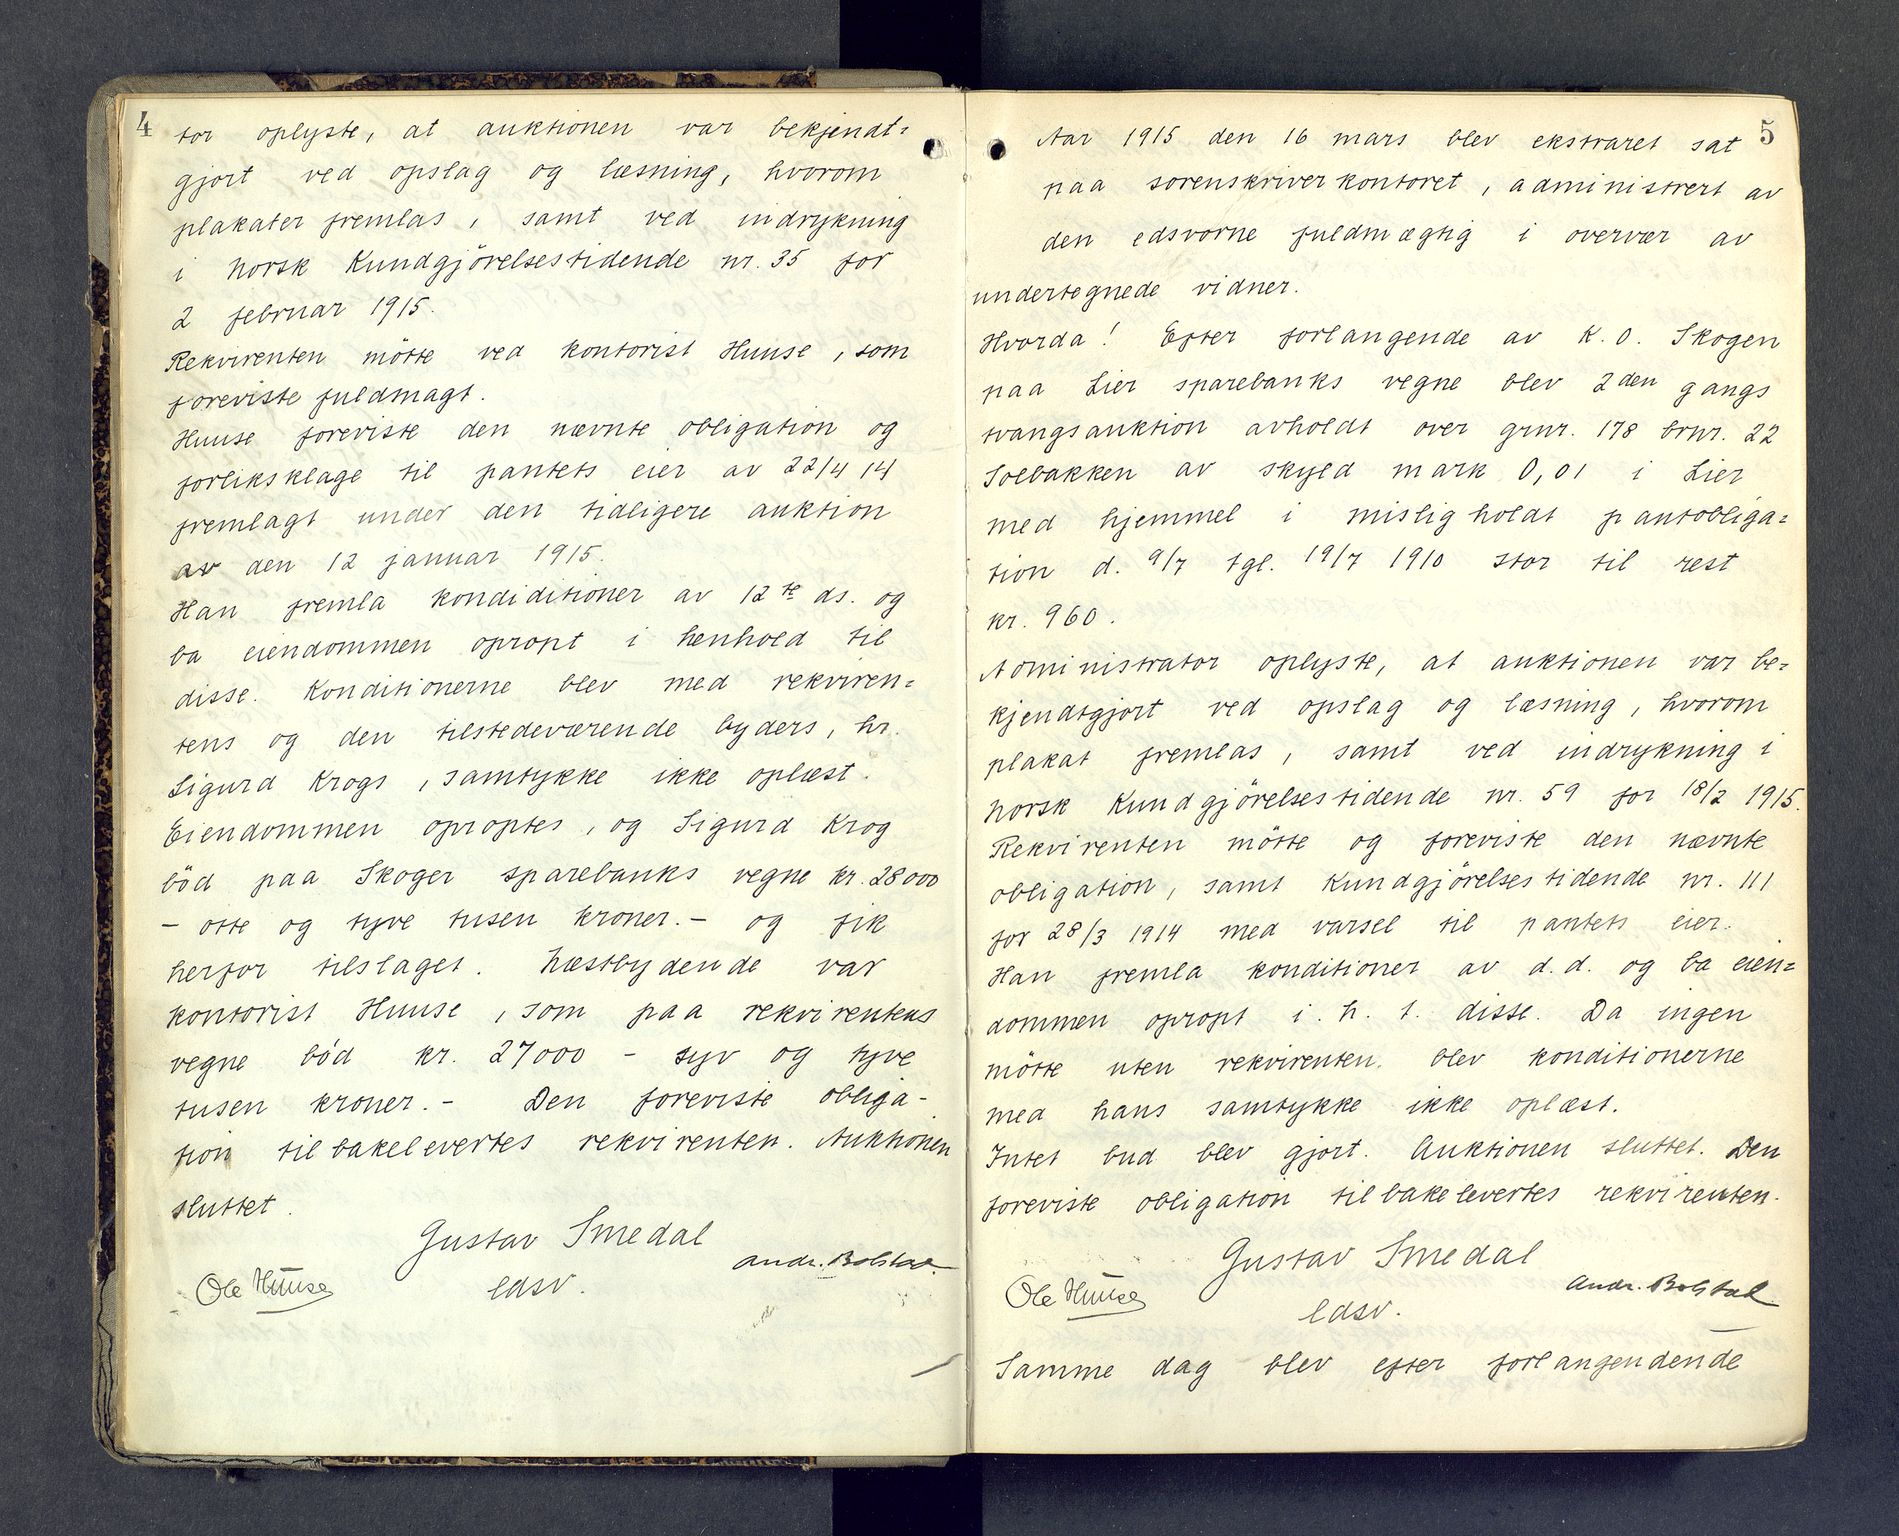 4
tor oplyste, at auktionen var bekjendt=
gjort ved opslag og læsning, hvorom
plakater fremlas, samt ved indrykning
i Norsk Kundgjörelsestidende nr. 35 for
2 februar 1915.
Rekvirenten mötte ved kontorist Huuse, som
foreviste fuldmagt.
Huuse foreviste den nævnte obligation og
forliksklage til pantets eier av 22/4 14
fremlagt under den tidligere auktion
av den 12 januar 1915.
Han fremla kondiditioner av 12te ds. og
ba eiendommen opropt i henhold til
disse. Konditionerne blev med rekviren=
tens og den tilstedeværende byders, hr.
Sigurd Krogs, samtykke ikke oplæst.
Eiendommen oproptes, og Sigurd Krog
böd paa Skoger sparebanks vegne kr. 28000
- otte og tyve tusen kroner. - og fik
herfor tilslaget. Næstbydende var
kontorist Huuse, som paa rekvirentens
vegne böd kr. 27000 - syv og tyve
tusen kroner. - Den foreviste obliga-
tion tilbakelevertes rekvirenten. Auktionen
sluttet.
Gustav Smedal
edsv.
Ole Huuse
Andr. Bolstad.
5
Aar 1915 den 16 mars blev ekstraret sat
paa sorenskriverkontoret, administrert av
den edsvorne fuldmægtig i overvær av
undertegnede vidner.
Hvorda! Efter forlangende av K. O. Skogen
paa Lier sparebanks vegne blev 2den gangs
tvangsauktion avholdt over grnr. 178 brnr. 22
Solbakken av skyld mark 0,01 i Lier
med hjemmel i misligholdt pantobliga=
tion d. 9/7 tgl. 19/7 1910 stor til rest
kr. 960.
Administrator oplyste, at auktionen var be=
kjendtgjort ved opslag og læsning, hvorom
plakat fremlas, samt ved indrykning i
Norsk Kundgjörelsestidende nr. 59 for 18/2 1915.
Rekvirenten mötte og foreviste den nævnte
obligation, samt Kundgjörelsestidende nr. 111
for 28/3 1914 med varsel til pantets eier.
Han fremla konditioner av d.d. og ba eien=
dommen opropt i. h. t. disse. Da ingen
mötte uten rekvirenten, blev konditionerne
med hans samtykke ikke oplæst.
Intet bud blev gjort. Auktionen sluttet. Den
foreviste obligation tilbakelevertes rekvirenten.
Gustav Smedal
edsv.
Ole Huuse
Andr. Bolstad.
Samme dag blev efter forlangendende